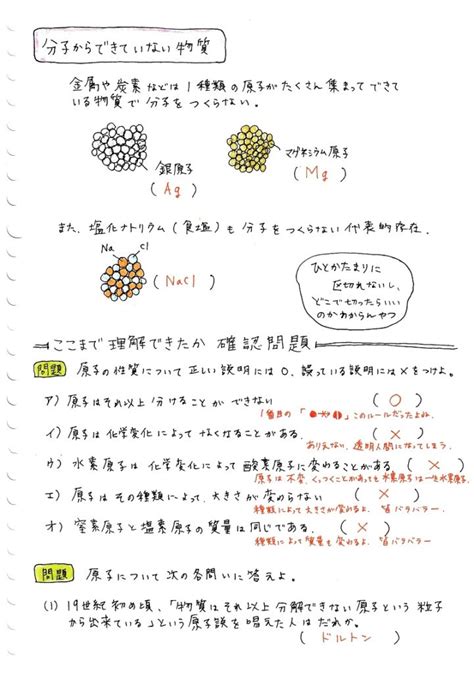 分子からできていない物質
金属や炭素などは1種類の原子がたくさん集まってできて
いる物質で分子をつくらない。
銀原子
(Ag)
マグネシウム原子
(Mg)
また、塩化ナトリウム(食塩)も分子をつくらない代表的存在.
Na Cl
(NaCl)
ひとかたまりに
区切れないし、
どこで切ったらいい
のかわからんやつ
ここまで理解できたか 確認問題
問題 原子の性質について正しい説明には○、誤っている説明には×をつけよ。
ア) 原子はそれ以上分けることができない (○)
このルールだったよね.
イ) 原子は化学変化によってなくなることがある. (×)
ありえない.透明人間になってしまう.
ウ) 水素原子は化学変化によって酸素原子に変わることがある (×)
原子は不変.くっつくことがあっても水素原子は一生水素原子.
エ) 原子はその種類によって、大きさが変わらない (×)
種類によって大きさが変わるよ.皆バラバラー
オ) 窒素原子と塩素原子の質量は同じである. (×)
種類によって質量も変わるよ.皆バラバラー
問題 原子について次の各問いに答えよ。
(1) 19世紀初め頃、「物質はそれ以上分解できない原子という粒子
から出来ている」という原子説を唱えた人はだれか。
(ドルトン)